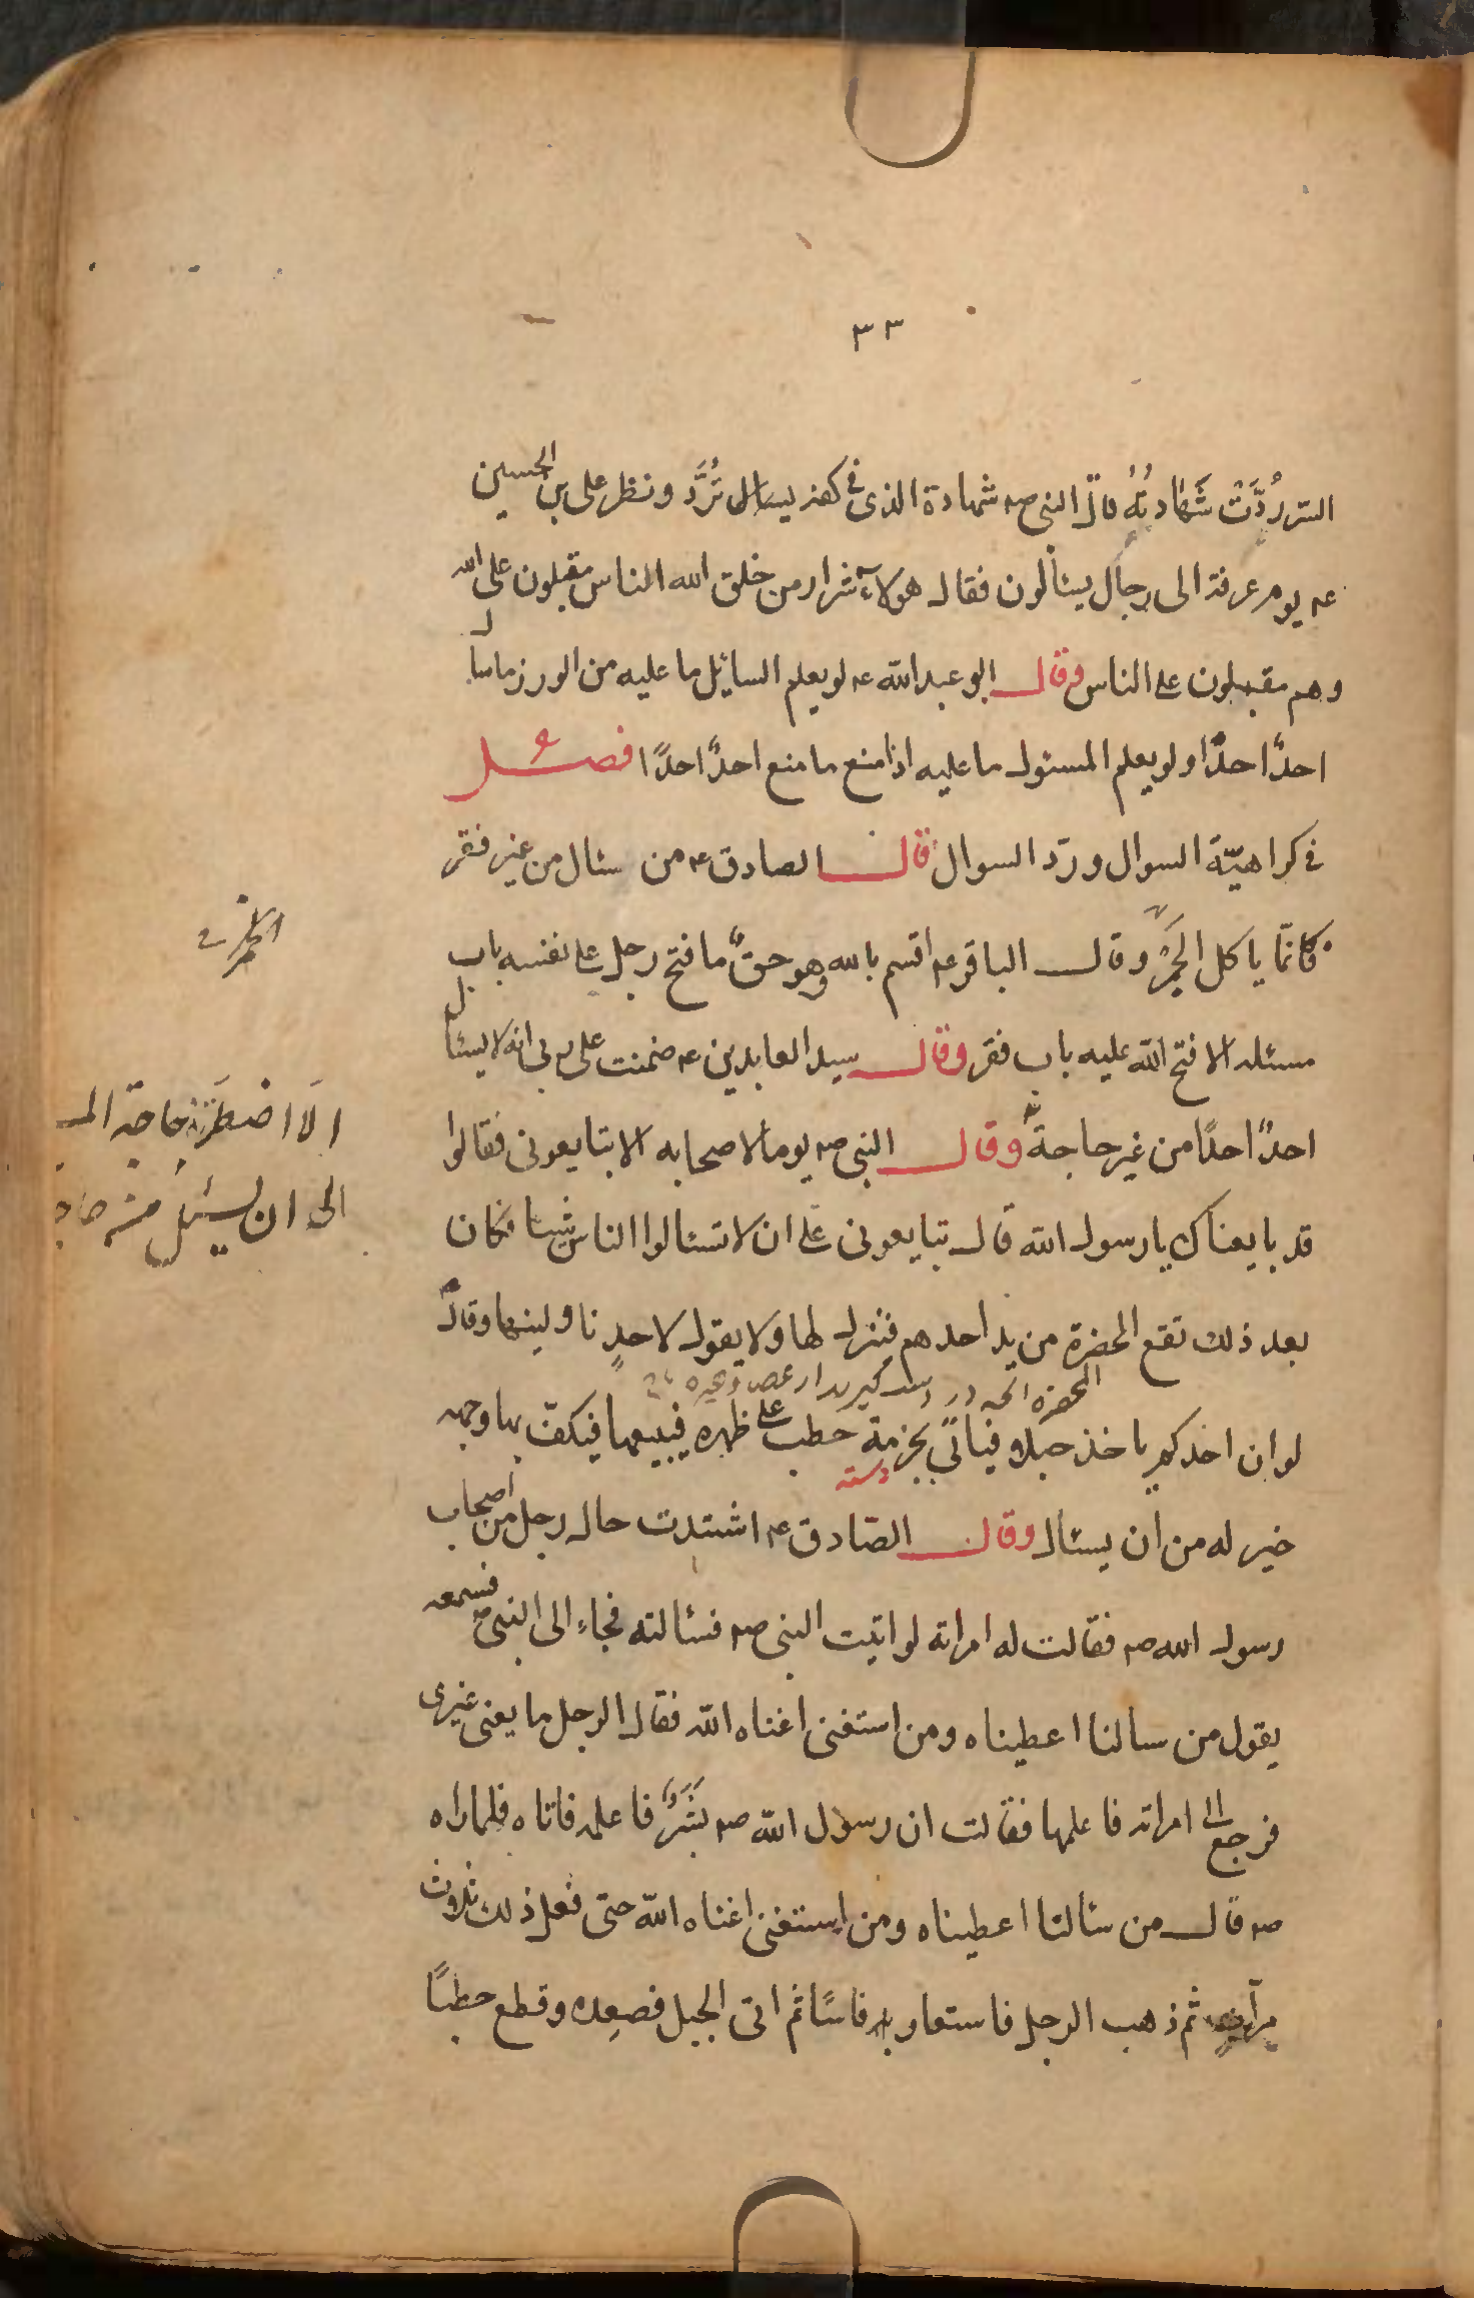 ٣٣
الستر رُدَّتْ شَهَادتهُ قال النبى صه شهادة الذى فى كفه يسال تُرَدَّ ونظر على بن الحسين
عه يوم عرفة الى رجال يسئالون فقال هولاء شرار من خلق الله الناس مقبلون على الله
وهم مقبلون على الناس وقال ابو عبد الله عه لو يعلم السائل ما عليه من الورز ما سأل
احدٌ احدًا ولو يعلم المسئول ما عليه اذا منع ما منع احدٌ احدًا فصل
فى كراهيّة السوال وردّ السوال قال الصادق عه من سئال من غير فقر
فكانّما ياكل الجمر وقال الباقر عه اقسم بالله وهو حقٌ ما فتح رجل على نفسه باب
مسئله الا فتح الله عليه باب فقر وقال سيد العابدين عه ضمنت على ربى انه لا يسئال
احدٌ احدًا من غير حاجة وقال النبى صه يوما لاصحابه الا تبايعونى فقالوا
قد بايعناك يا رسول الله قال تبايعونى على ان لا تسئالوا الناس شيئا فكان
بعد ذلك تقع المحضرة من يد احدهم فينزل لها ولا يقول لاحدٍ ناولينها وقال
المحضره
لو ان احدكم ياخذ حبلا فيأتى بحزمة حطب على ظهره فيبيعها فيكفّ بها وجهه
دسته
خير له من ان يسئال وقال الصّادق عه اشتدت حال رجل من اصحاب
رسول الله صه فقالت له امراته لو اتيت النبى صه فسئالته فجاء الى النبى صه فسمعه
يقول من سالنا اعطيناه ومن استغنى اغناه الله فقال الرجل ما يعنى غيرى
فرجع الى امراته فاعلمها فقالت ان رسول الله صه بَشَرٌ فاعلمه فاتاه فلما راه
صه قال من سئالنا اعطيناه ومن استغنى اغناه الله حتى فعل ذلك ثلاث
مرآت ثم ذهب الرجل فاستعار فاسًا ثم اتى الجبل فصعده وقطع حطبًا
الجمر
الا اضطرته حاجة الـ
الى ان يسئل من حاجة